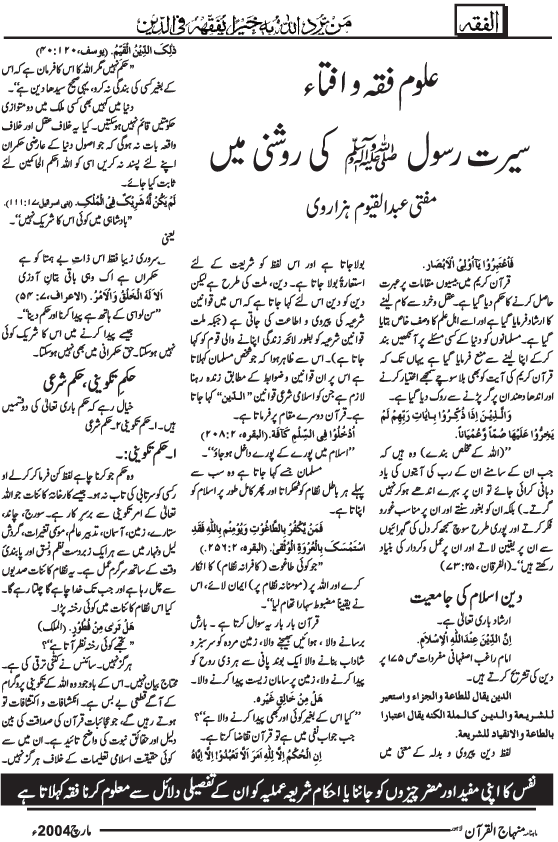 الفقہ
من یرد اللہ بہ خیرا یفقہہ فی الدین
علوم فقہ و افتاء
سیرت رسول ﷺ کی روشنی میں
مفتی عبدالقیوم ہزاروی
فَاعْتَبِرُوْا یٰاُولِی الْاَبْصَار.
قرآن کریم میں بیسیوں مقامات پر عبرت
حاصل کرنے کا حکم دیا گیا ہے۔ عقل و خرد سے کام لینے
کا ارشاد فرمایا گیا ہے اور اسے اہل علم کا وصف خاص بتایا
ہے۔ مسلمانوں کو دنیا کے کسی مسئلے پر آنکھیں بند
کر کے اپنا لینے سے منع فرمایا گیا ہے یہاں تک کہ
قرآن کریم کی آیت کو بھی بلا سوچے سمجھے اختیار کرنے
اور اندھا دھندان پر گر پڑنے سے روک دیا گیا ہے۔
وَالَّذِیْنَ اِذَا ذُکِّرُوْا بِاٰیَاتِ رَبِّهِمْ لَمْ
یَخِرُّوْا عَلَیْهَا صُمًّا وَّعُمْیَانًا.
’’(اللہ کے مخلص بندے) وہ ہیں کہ
جب ان کے سامنے ان کے رب کی آیتوں کی یاد
دہانی کرائی جائے تو ان پر بہرے اندھے ہوکر نہیں
گرتے۔) بلکہ ان کو بغور سنتے اور ان پر مناسب غور و
فکر کرتے اور پوری طرح سوچ سمجھ کر دل کی گہرائیوں
سے ان پر یقین لاتے اور ان پر عمل و کردار کی بنیاد
رکھتے ہیں‘‘۔ (الفرقان، ۲۵:۷۳)
دین اسلام کی جامعیت
ارشاد باری تعالیٰ ہے۔
اِنَّ الدِّیْنَ عِنْدَاللّٰهِ الْاِسْلَام.
امام راغب اصفہانی مفردات ص ۱۷۵ پر
دین کی تشریح کرتے ہیں۔
الدین یقال للطاعة والجزاء واستعیر
للشریعة والدین کالملة لکنه یقال اعتبارا
بالطاعة والانقیاد للشریعة.
لفظ دین پیروی و بدلہ کے معنی میں
بولا جاتا ہے اور اس لفظ کو شریعت کے لئے
استعارۃً بولا جاتا ہے۔ دین، ملت کی طرح ہے لیکن
دین کو دین اس لئے کہا جاتا ہے کہ اس میں قوانین
شرعیہ کی پیروی و اطاعت کی جاتی ہے (جبکہ ملت
شرعیہ کو بطور لائحہ زندگی اپنانے والی قوم کو کہا
جاتا ہے)۔ اس سے ظاہر ہوا کہ جو شخص مسلمان کہلاتا
ہے اس پر ان قوانین و ضوابط کے مطابق زندہ رہنا
لازم ہے جن کو اسلامی شرعی قوانین ’’الدین‘‘ کہا جاتا
ہے۔ قرآن دوسرے مقام پر فرماتا ہے۔
اُدْخُلُوْا فِی السِّلْمِ کَآفَّةً. (البقرہ، ۲:۲۰۸)
’’اسلام میں پورے کے پورے داخل ہوجاؤ‘‘۔
مسلمان جسے کہا جاتا ہے وہ سب سے
پہلے ہر باطل نظام کو ٹھکراتا اور پھر کامل طور پر اسلام کو
اپناتا ہے۔
فَمَنْ یَّکْفُرْ بِالطَّاغُوْتِ وَیُؤْمِنْ بِاللّٰهِ فَقَدِ
اسْتَمْسَکَ بِالْعُرْوَةِ الْوُثْقٰی. (البقرہ، ۲:۲۵۶)
’’جو کوئی طاغوت (کافرانہ نظام) کا انکار
کرے اور اللہ پر (مومنانہ نظام پر) ایمان لائے، اس
نے یقینا مضبوط سہارا تھام لیا‘‘۔
قرآن بار بار یہ سوال کرتا ہے۔ بارش
برسانے والا، ہوائیں بھیجنے والا، زمین مردہ کو سرسبز و
شاداب بنانے والا ایک بوند پانی سے ہر ذی روح کو
پیدا کرنے والا، زمین پر سامان زیست پیدا کرنے والا۔
هَلْ مِنْ خَالِقٍ غَیْرُه.
’’کیا اس کے بغیر کوئی اور بھی پیدا کرنے والا ہے‘‘؟
جب جواب نفی میں ہے تو قرآن تقاضا کرتا ہے۔
اِنِ الْحُکْمُ اِلَّا لِلّٰهِ اَمَرَ اَلَّا تَعْبُدُوْا اِلَّا اِیَّاهُ
ذٰلِکَ الدِّیْنُ الْقَیِّمُ. (یوسف، ۱۲:۴۰)
’’حکم نہیں مگر اللہ کا اس کا فرمان ہے کہ اس
کے بغیر کسی کی بندگی نہ کرو، یہی صحیح سیدھا دین ہے‘‘۔
دنیا میں کہیں بھی کسی ملک میں دو متوازی
حکومتیں قائم نہیں ہوسکتیں۔ کیا یہ خلاف عقل اور خلاف
واقعہ بات نہ ہوگی کہ جو اصول دنیا کے عارضی حکمران
اپنے لئے پسند نہ کریں اسی کو اللہ احکم الحاکمین کے لئے
ثابت کیا جائے۔
لَمْ یَکُنْ لَّهُ شَرِیْکٌ فِی الْمُلْکِ. (بنی اسرائیل ۱۷:۱۱۱)
’’بادشاہی میں کوئی اس کا شریک نہیں‘‘۔
یعنی
سروری زیبا فقط اس ذات بے ہمتا کو ہے
حکمراں ہے اک وہی باقی بتان آذری
اَلَا لَهُ الْخَلْقُ وَالْاَمْرُ. (الاعراف، ۷:۵۴)
’’سن لو اسی کے ہاتھ ہے پیدا کرنا اور حکم دینا‘‘۔
جیسے پیدا کرنے میں اس کا شریک کوئی
نہیں ہوسکتا۔ حق حکمرانی میں بھی نہیں ہوسکتا۔
حکم تکوینی، حکم شرعی
خیال رہے کہ حکم باری تعالیٰ کی دو قسمیں
ہیں۔ ۱۔ حکم تکوینی ۲۔ حکم شرعی
۱۔ حکم تکوینی:۔
وہ حکم جو کرنا چاہے لفظ کن فرما کر کر لے اور
کسی کو سرتابی کی تاب نہ ہو۔ جیسے کارخانہ کائنات جو اللہ
تعالیٰ کے امر تکوینی سے برسر کار ہے۔ سورج، چاند،
ستارے، زمین، آسمان، تدبیر عالم، موسمی تغیرات، گردش
لیل و نہار میں سے ہر ایک زبردست نظم و نسق اور پابندی
وقت کے ساتھ سرگرم عمل ہے۔ یہ نظام کائنات صدیوں
سے چل رہا ہے اور جب تک خدا چاہے گا چلتا رہے گا۔
کیا اس نظام کائنات میں کوئی رخنہ پڑا۔
هَلْ تَرٰی مِنْ فُطُوْرٍ. (الملک)
’’تجھے کوئی رخنہ نظر آتا ہے‘‘؟
ہرگز نہیں۔ سائنس نے کتنی ترقی کی ہے۔
محتاج بیان نہیں۔ اس کے باوجود وہ اللہ کے تکوینی پروگرام
کے آگے قطعی بے بس ہے۔ انکشافات و اکتشافات تو
ہوتے رہیں گے، جو عجائبات قرآن کی صداقت کی بین
دلیل اور حقائق نبوت کی واضح تائید ہے۔ ان میں سے
کوئی حقیقت اسلامی تعلیمات کے خلاف ہرگز نہیں۔
نفس کا اپنی مفید اور مضر چیزوں کو جاننا یا احکام شریعہ عملیہ کو ان کے تفصیلی دلائل سے معلوم کرنا فقہ کہلاتا ہے
ماہنامہ منہاج القرآن لاہور
مارچ 2004ء